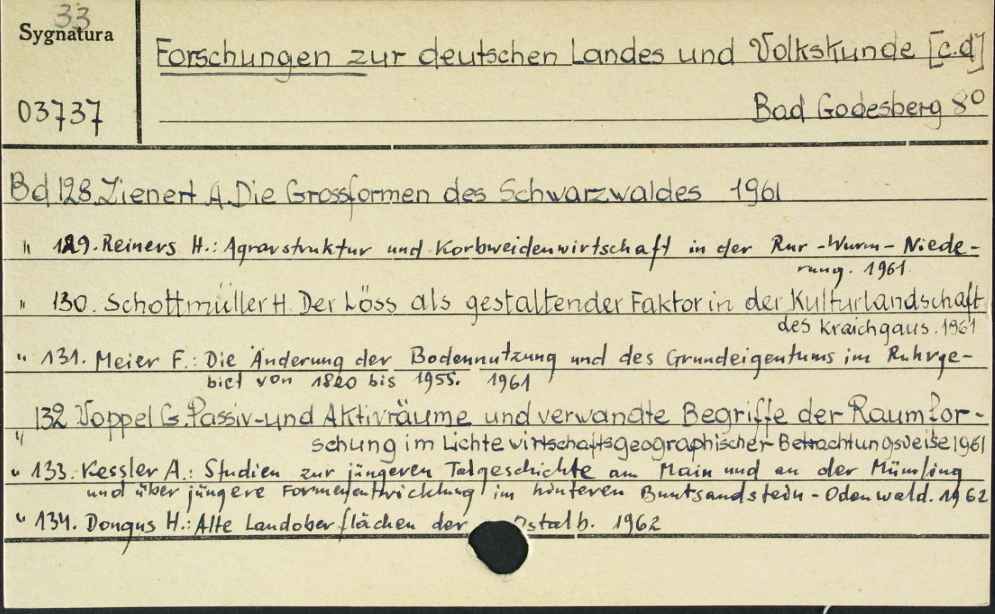 33
Sygnatura
03737
Forschungen zur deutschen Landes und Volkskunde [c.d]
Bad Godesberg 8°
Bd 128. Zienert A. Die Grossformen des Schwarzwaldes 1961
" 129. Reiners H.: Agrarstruktur und Korbweidenwirtschaft in der Rur-Wurm-Niede-
rung. 1961
" 130. Schottmüller H. Der Löss als gestaltender Faktor in der Kulturlandschaft
des Kraichgaus. 1961
" 131. Meier F.: Die Änderung der Bodennutzung und des Grundeigentums im Ruhrge-
biet von 1820 bis 1955. 1961
" 132 Voppel G. Passiv-und Aktivräume und verwandte Begriffe der Raumfor-
schung im Lichte wirtschaftsgeographischer Betrachtungsveise 1961
" 133. Kessler A.: Studien zur jüngeren Talgeschichte am Main und an der Mümling
und über jüngere Formenentwicklung im hinteren Buntsandstein-Odenwald. 1962
" 134. Dongus H.: Alte Landoberflächen der Ostalb. 1962